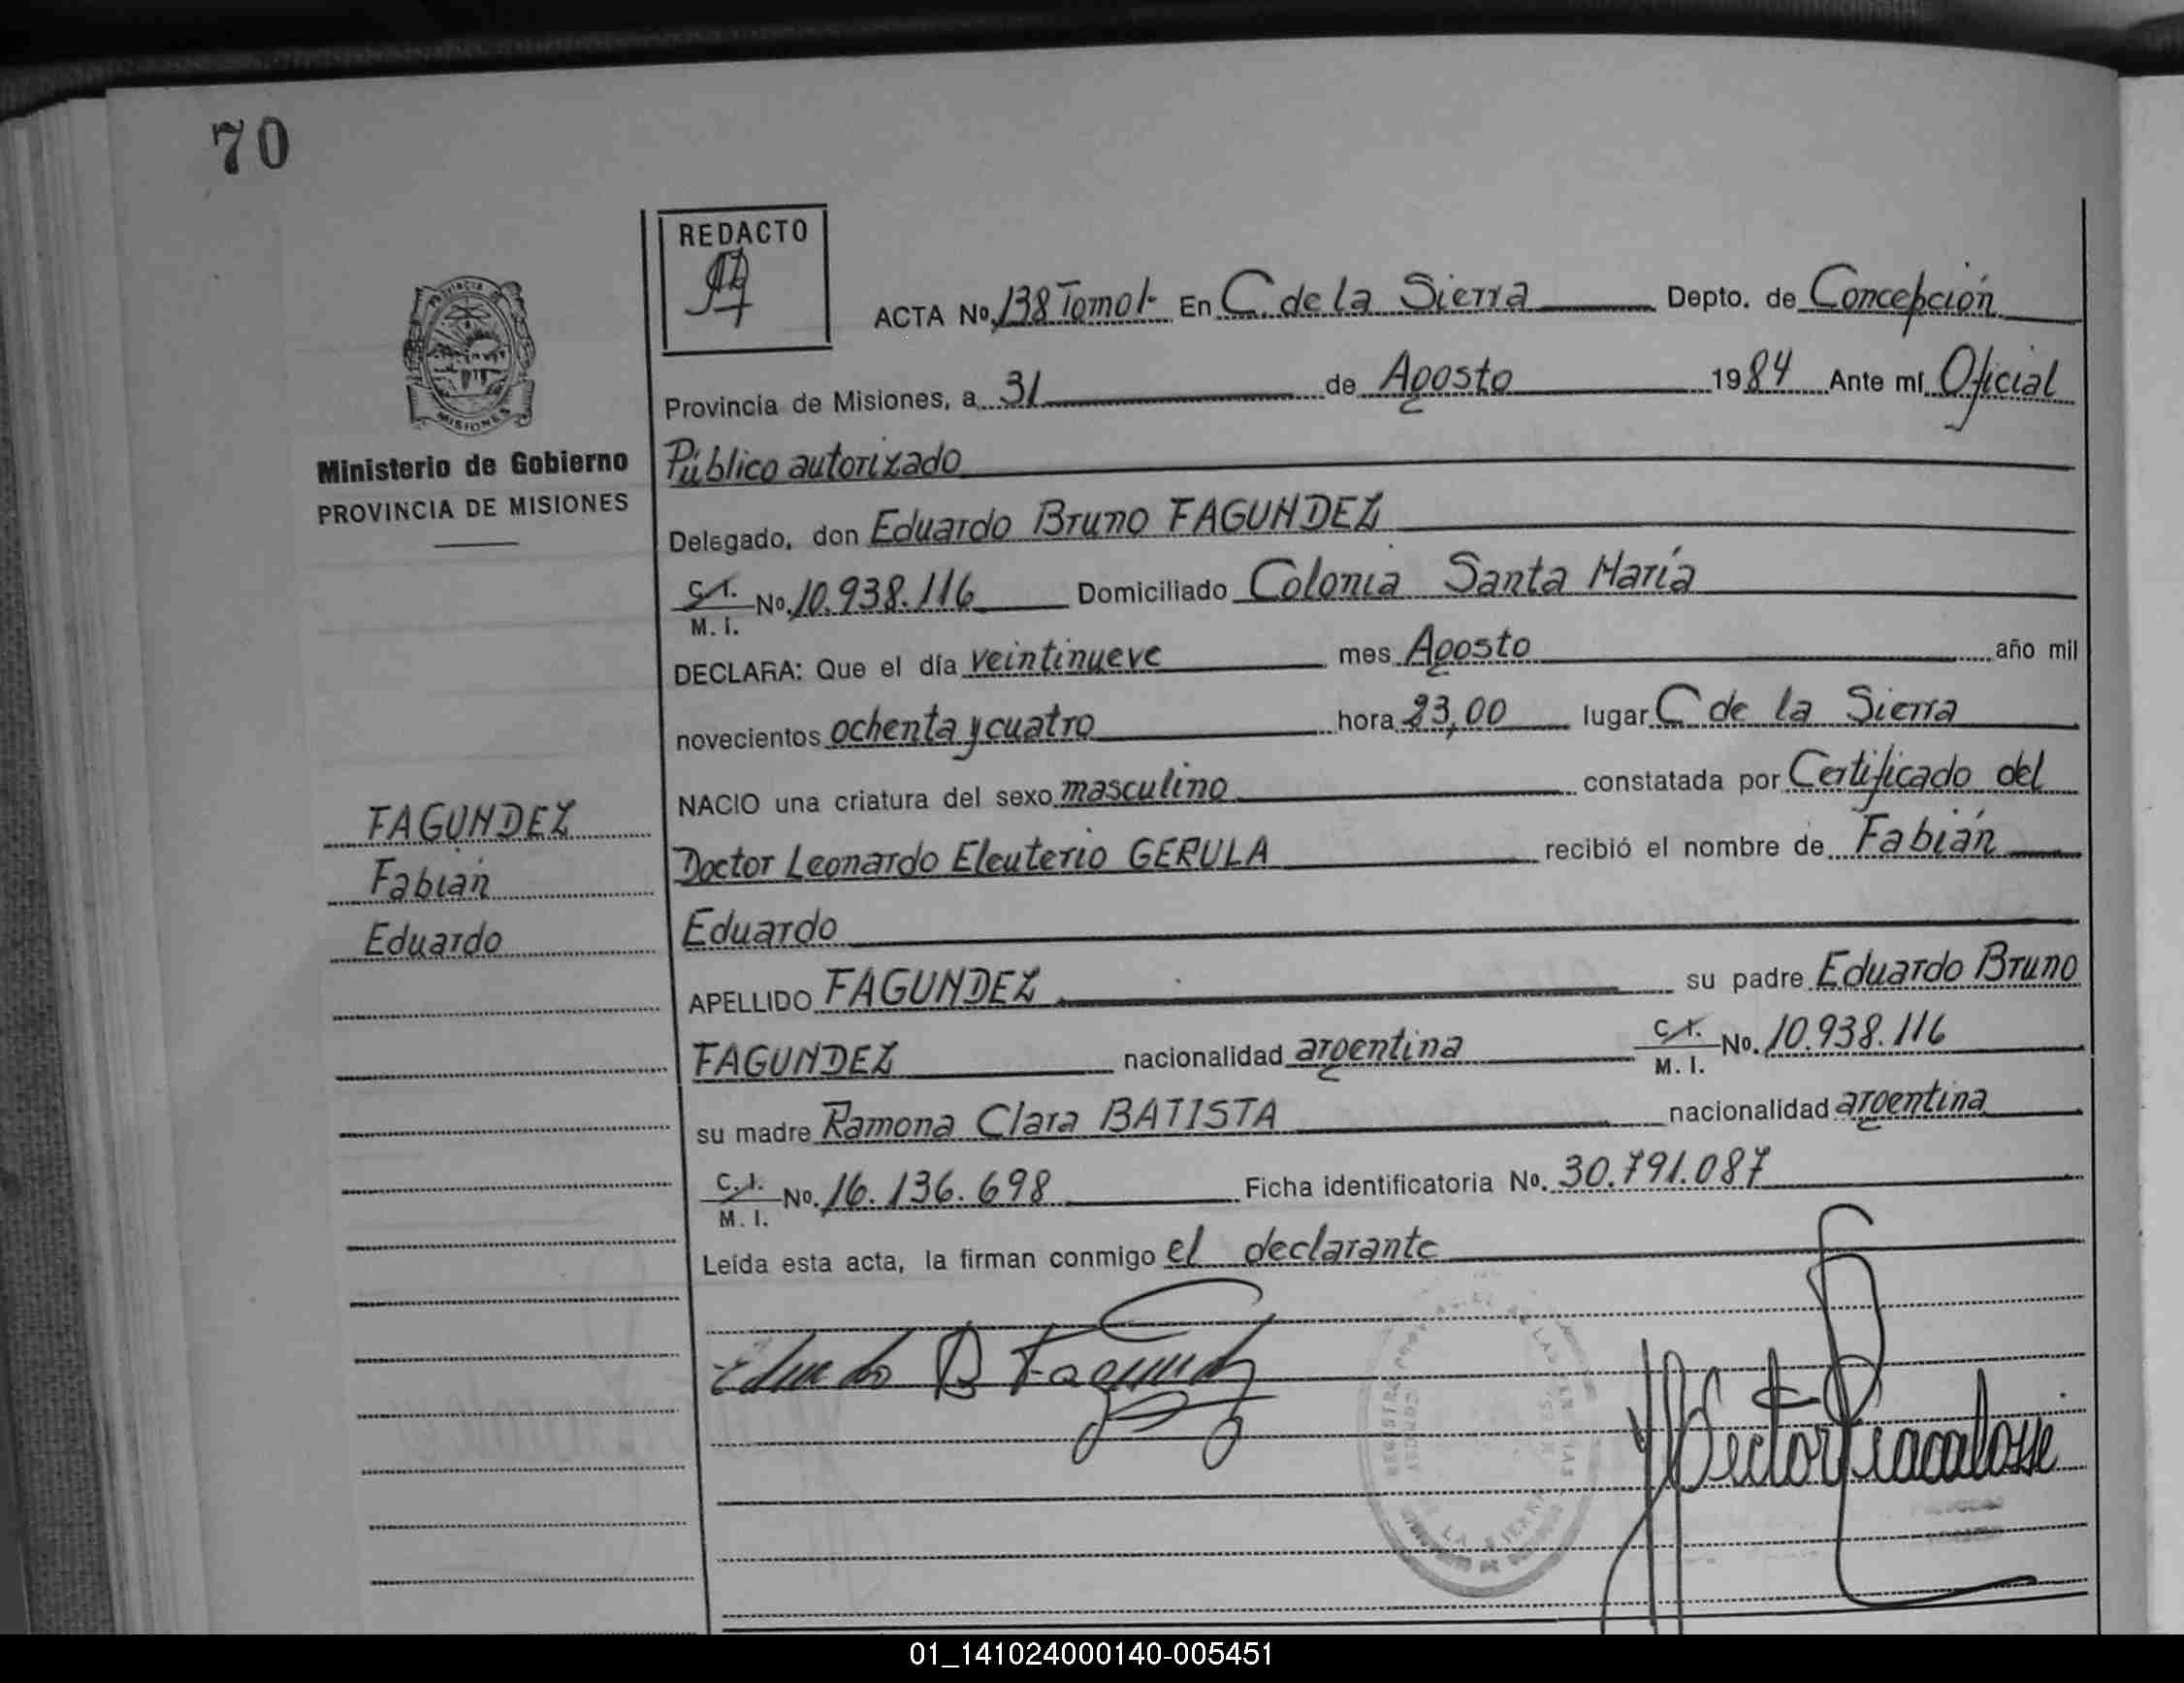 70
REDACTO
ACTA No. 138 Tomo 1- En C. de la Sierra Depto. de Concepción
Provincia de Misiones, a 31 de Agosto 1984 Ante mí Oficial
Público autorizado
Delegado, don Eduardo Bruno FAGUNDEZ
C.I. M.I. No. 10.938.116 Domiciliado Colonia Santa María
DECLARA: Que el día veintinueve mes Agosto año mil
novecientos ochenta y cuatro hora 23,00 lugar C de la Sierra
NACIO una criatura del sexo masculino constatada por Certificado del
Doctor Leonardo Eleuterio GERULA recibió el nombre de Fabián
Eduardo
APELLIDO FAGUNDEZ su padre Eduardo Bruno
FAGUNDEZ nacionalidad argentina C.I. M.I. No. 10.938.116
su madre Ramona Clara BATISTA nacionalidad argentina
C.I. M.I. No. 16.136.698 Ficha identificatoria No. 30.791.087
Leída esta acta, la firman conmigo el declarante
Eduardo B Fagundez
PROVINCIA DE MISIONES
Ministerio de Gobierno
PROVINCIA DE MISIONES
FAGUNDEZ
Fabián
Eduardo
01_141024000140-005451